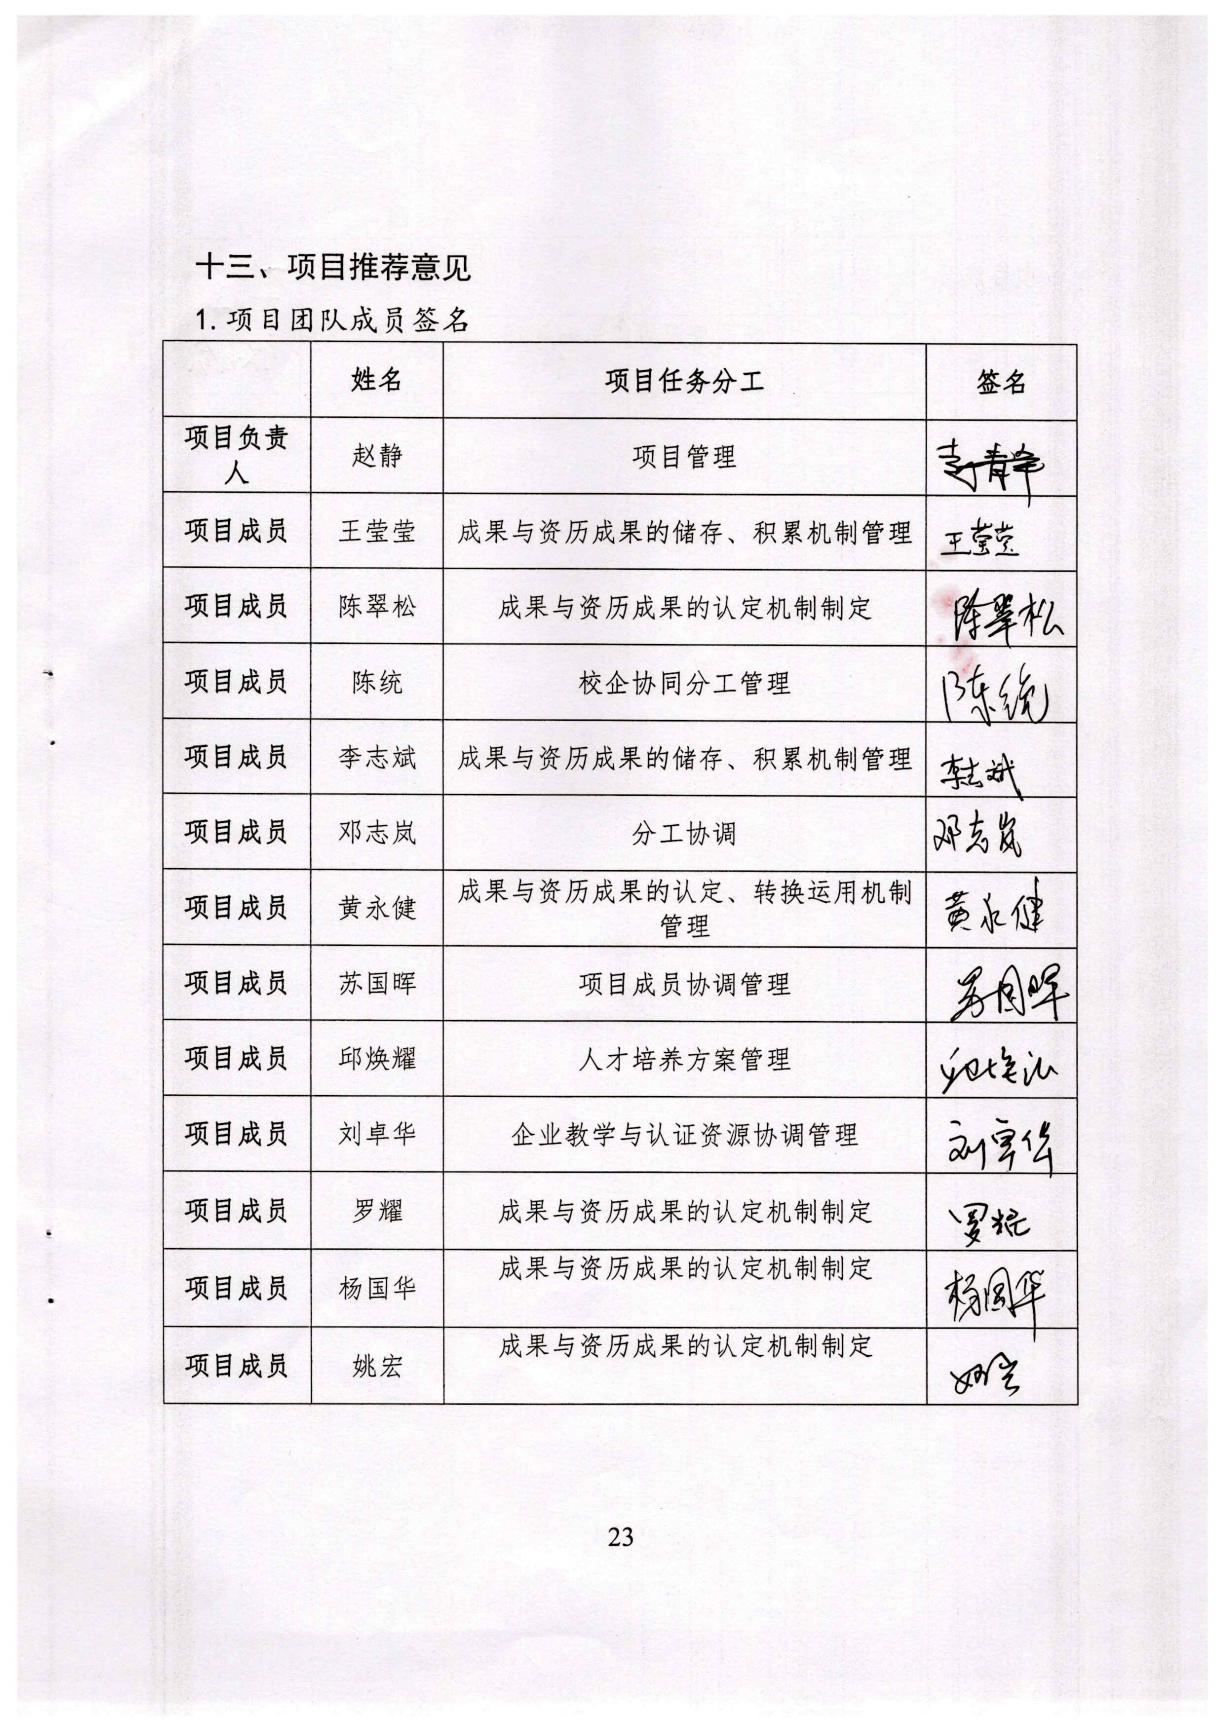 十三、项目推荐意见
1.项目团队成员签名
姓名 项目任务分工 签名
项目负责
人 赵静 项目管理 赵静
项目成员 王莹莹 成果与资历成果的储存、积累机制管理 王莹莹
项目成员 陈翠松 成果与资历成果的认定机制制定 陈翠松
项目成员 陈统 校企协同分工管理 陈统
项目成员 李志斌 成果与资历成果的储存、积累机制管理 李志斌
项目成员 邓志岚 分工协调 邓志岚
项目成员 黄永健 成果与资历成果的认定、转换运用机制
管理 黄永健
项目成员 苏国晖 项目成员协调管理 苏国晖
项目成员 邱焕耀 人才培养方案管理
项目成员 刘卓华 企业教学与认证资源协调管理 刘卓华
项目成员 罗耀 成果与资历成果的认定机制制定 罗耀
项目成员 杨国华 成果与资历成果的认定机制制定 杨国华
项目成员 姚宏 成果与资历成果的认定机制制定 姚宏
23